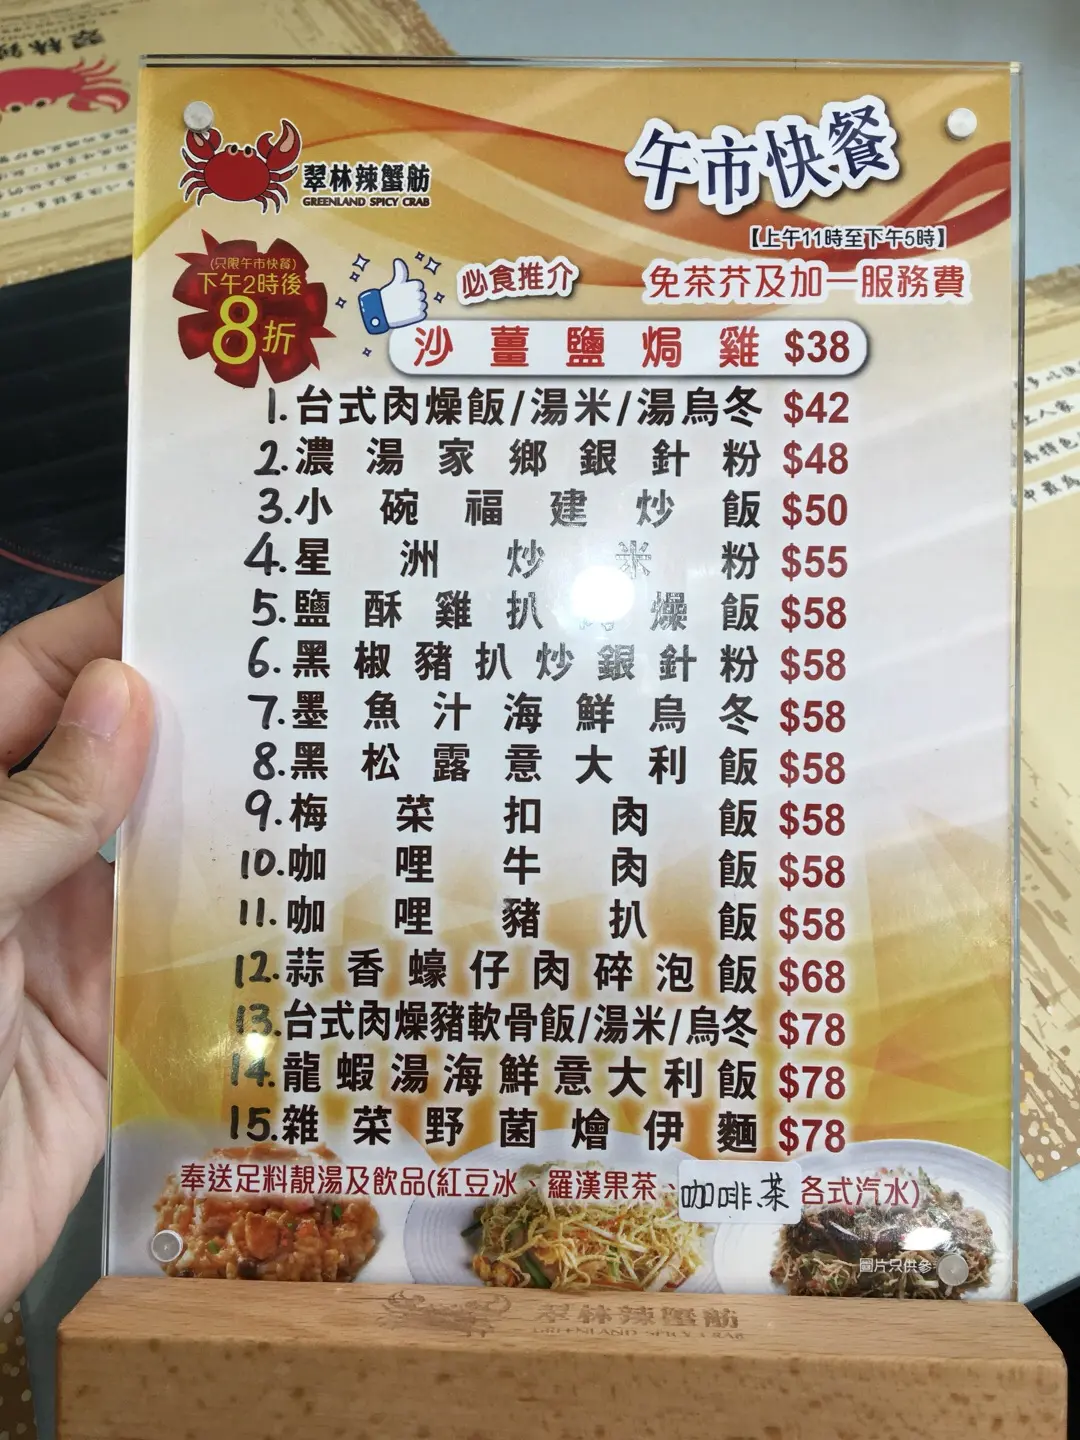 翠林辣蟹舫
GREENLAND SPICY CRAB
午市快餐
【上午11時至下午5時】
(只限午市快餐)
下午2時後
8折
必食推介
免茶芥及加一服務費
沙薑鹽焗雞 $38
1.台式肉燥飯/湯米/湯烏冬 $42
2.濃湯家鄉銀針粉 $48
3.小碗福建炒飯 $50
4.星洲炒米粉 $55
5.鹽酥雞扒肉燥飯 $58
6.黑椒豬扒炒銀針粉 $58
7.墨魚汁海鮮烏冬 $58
8.黑松露意大利飯 $58
9.梅菜扣肉飯 $58
10.咖哩牛肉飯 $58
11.咖哩豬扒飯 $58
12.蒜香蠔仔肉碎泡飯 $68
13.台式肉燥豬軟骨飯/湯米/烏冬 $78
14.龍蝦湯海鮮意大利飯 $78
15.雜菜野菌燴伊麵 $78
奉送足料靚湯及飲品(紅豆冰、羅漢果茶、咖啡.茶 各式汽水)
圖片只供參
翠林辣蟹舫
GREENLAND SPICY CRAB